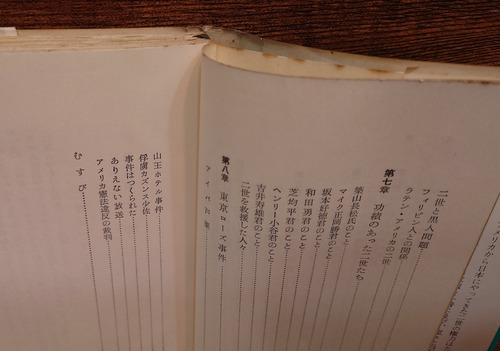 メリカから日本にやってきた二世の権力は
二世と黒人問題
フィリピン人との関係
ラテン・アメリカの二世
第七章 功績のあった二世たち
築山長松氏のこと
マイク正岡勝君のこと
坂本好徳君のこと
和田勇君のこと
芝均平君のこと
ヘンリー小谷君のこと
吉井寿雄君のこと
二世を救援した人々
第八章 東京ローズ事件
アイバ
山王ホテル事件
俘虜カズンス少佐
事件はつくられた
ありえない放送
アメリカ憲法違反の裁判
むすび